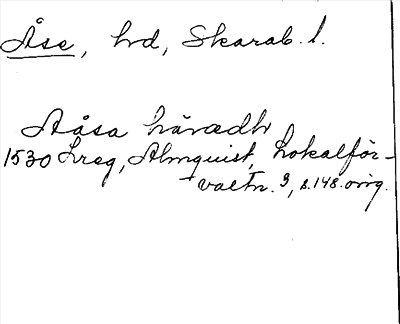 Åse, hd, Skarab. l.
Aåsa häradh
1530 Lreg, Almquist, Lokalför-
valtn. 3, s. 148. orig.